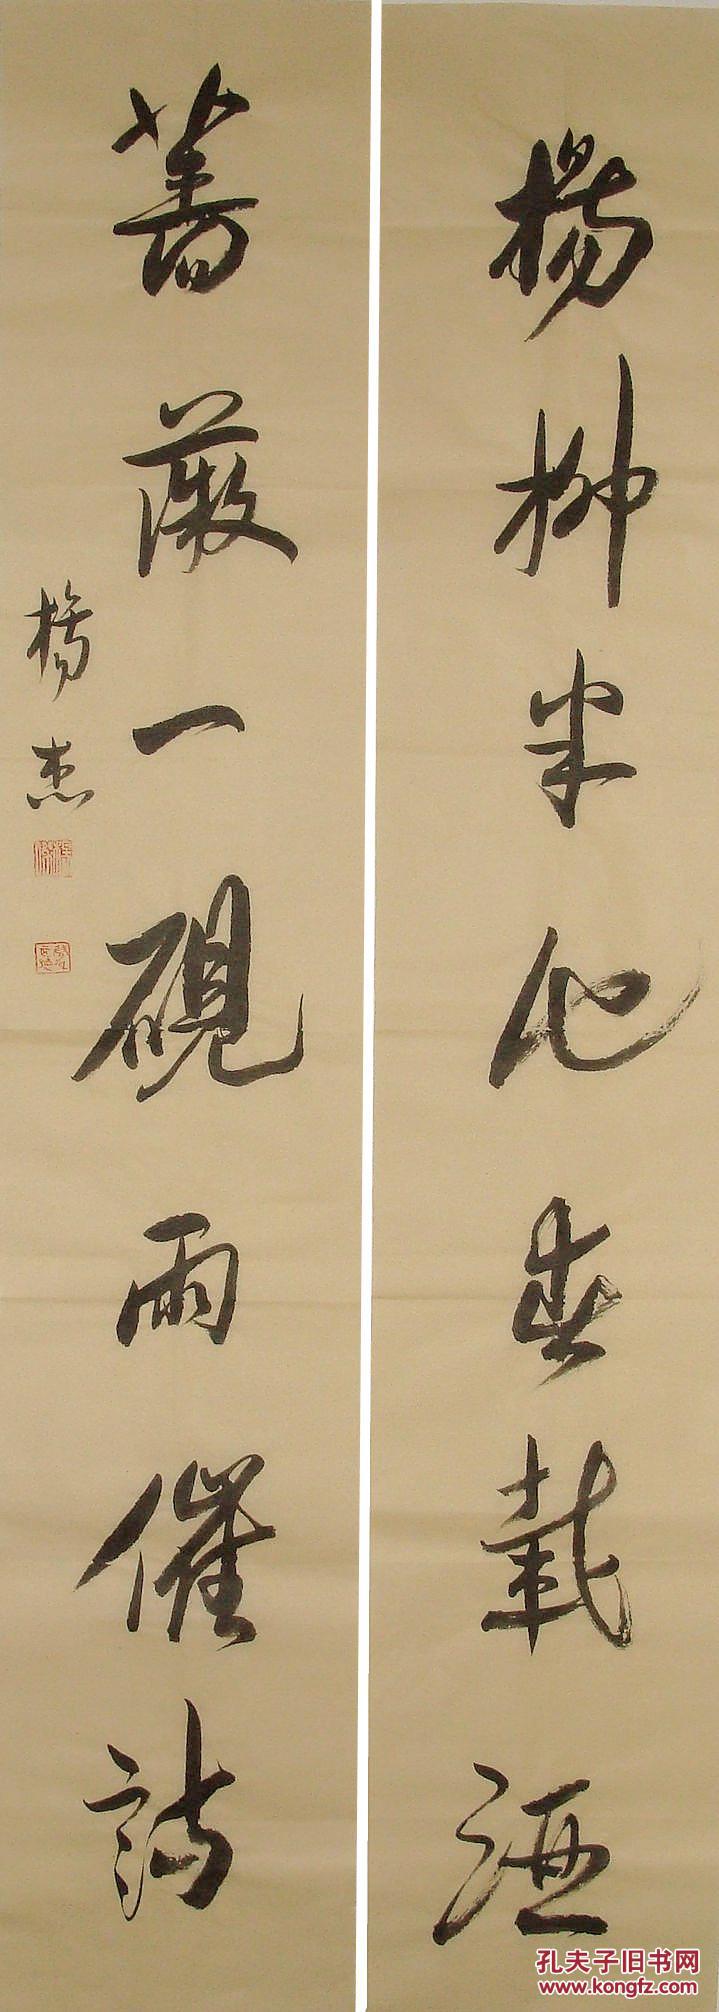 楊柳半池春載酒
蔷薇一硯雨催詩
楊杰
孔夫子旧书网
www.kongfz.com